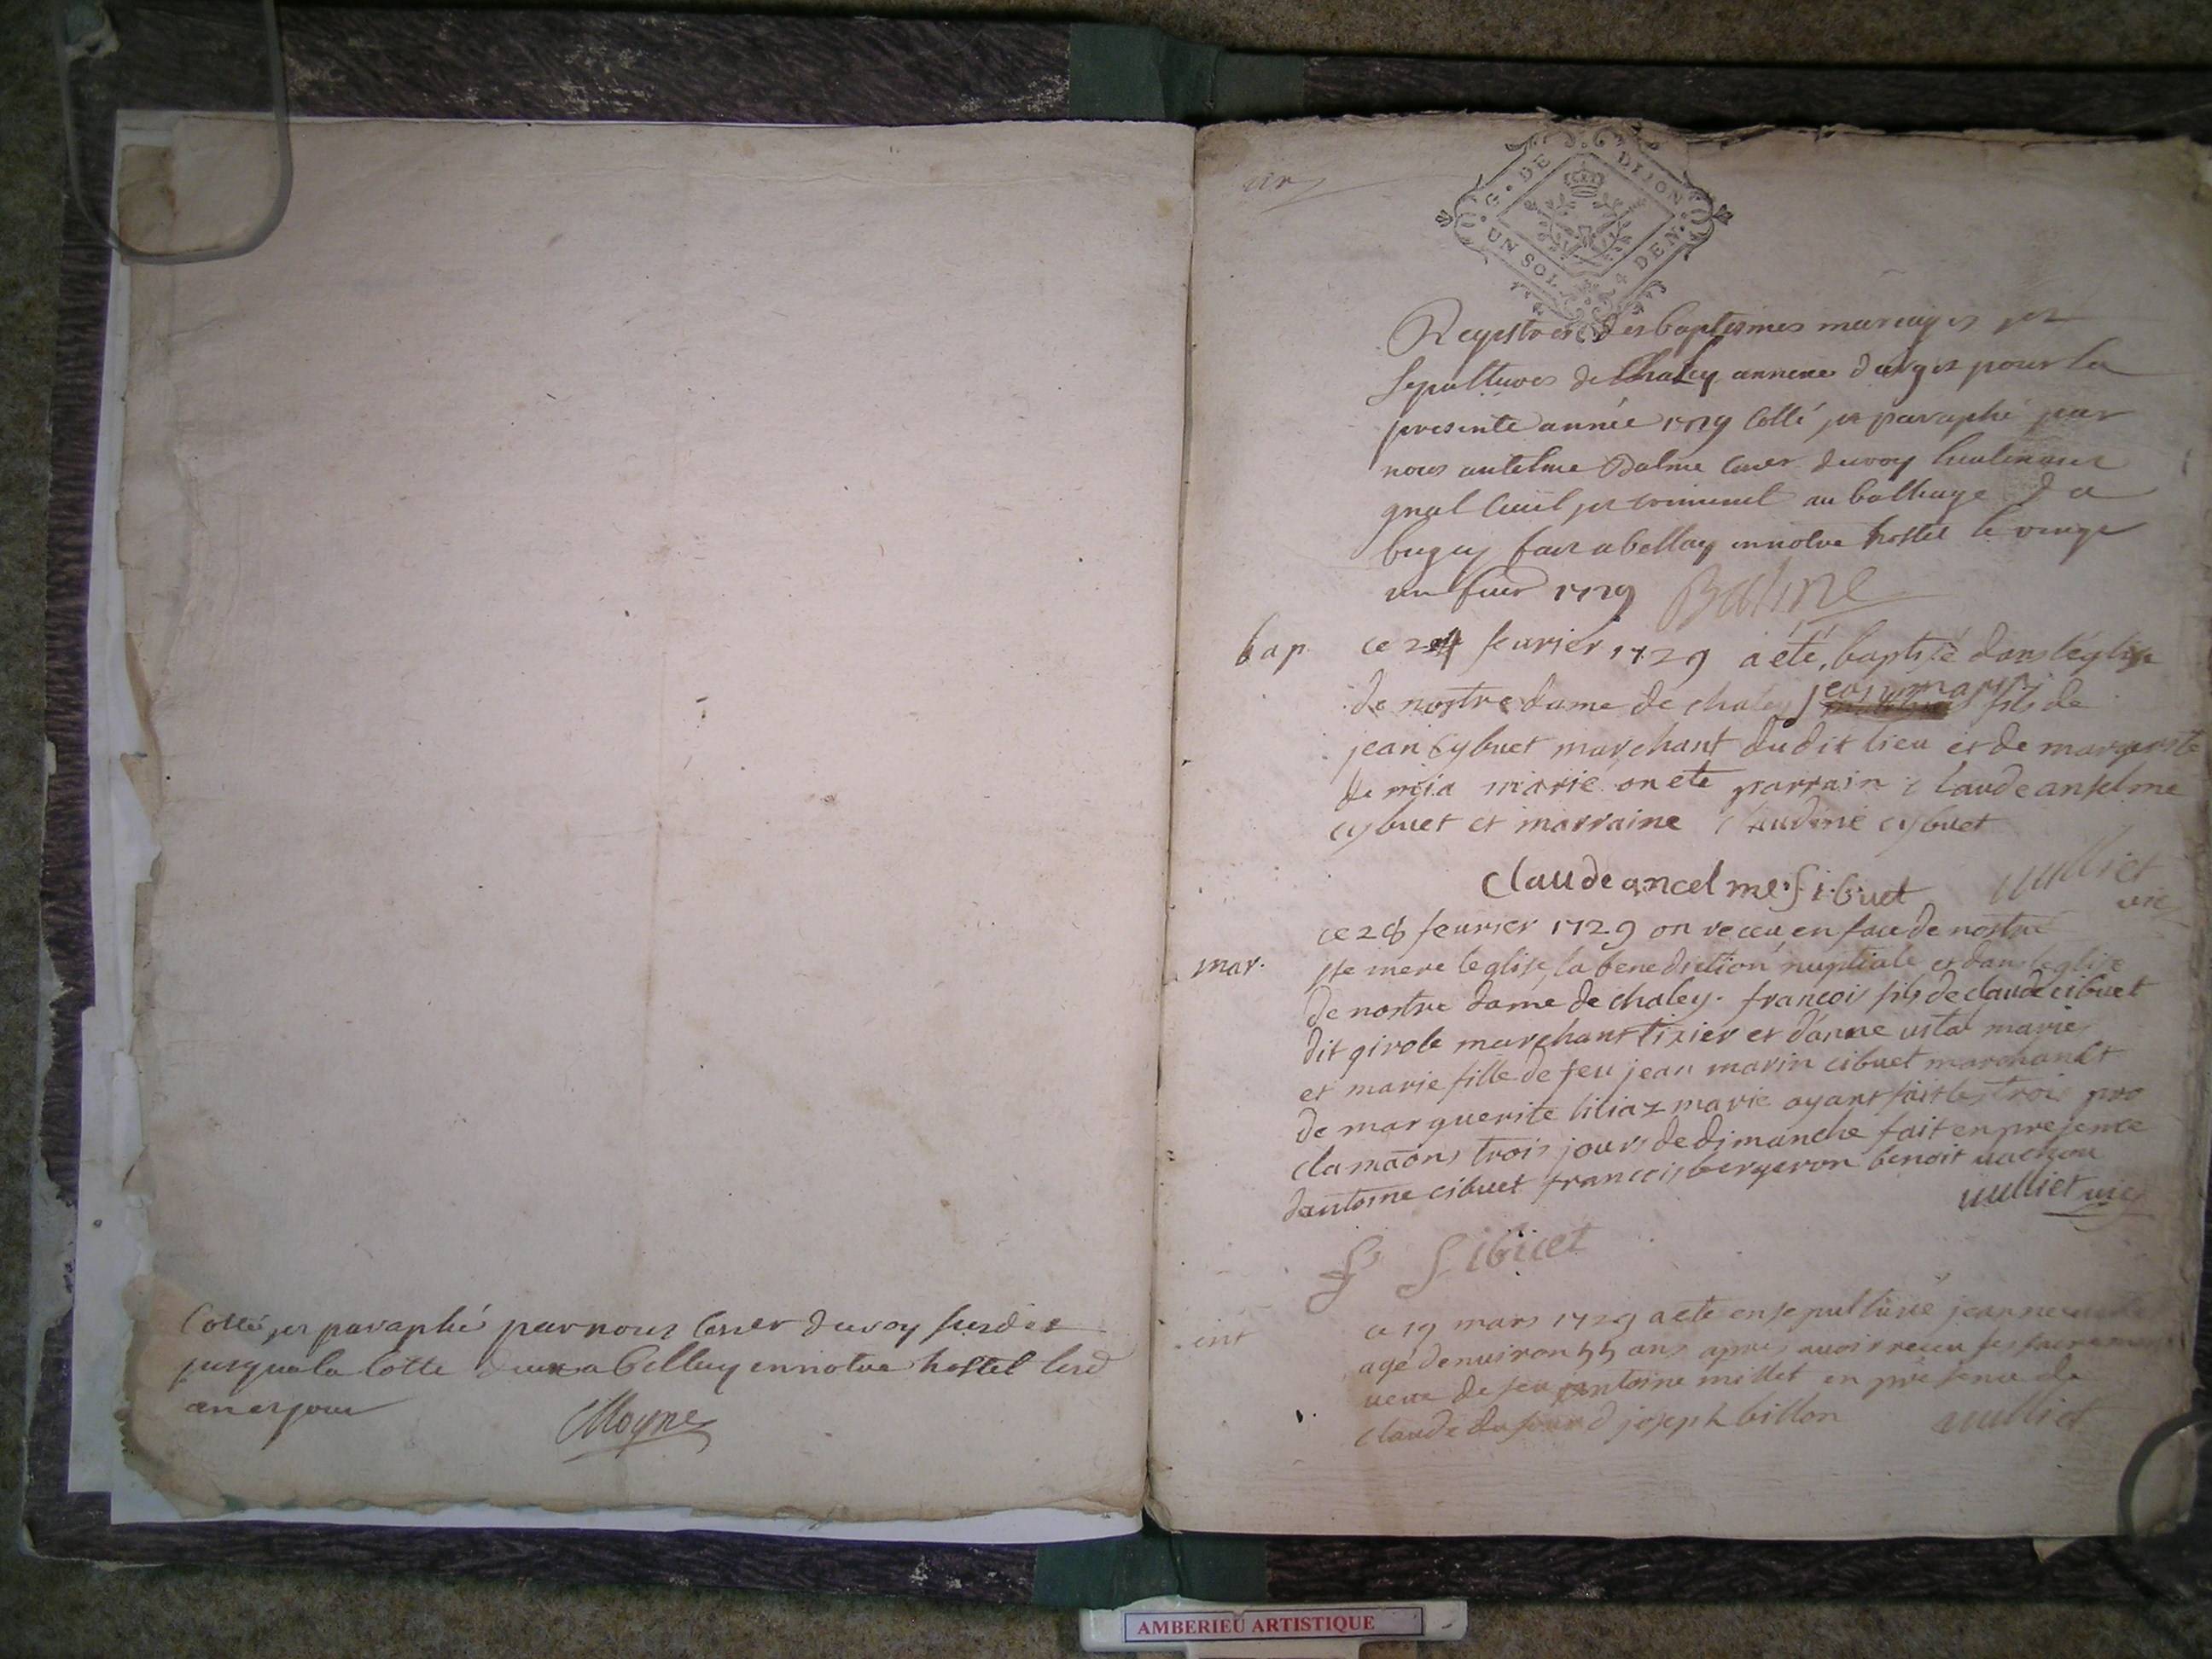 Cotté et paraphé par nous Conser du roy susdit
jusqua la cotte a Belley en notre hostel lesd
an et jour
Moyne
G. DE DIJON
UN SOL 4 DEN.
Registres des baptesmes mariages et
sepultures de Chaley annexe d'argis pour la
presente année 1729 Cotté et paraphé par
nous antelme Balme Coner du roy lieutenant
gnal Civil et criminel au balliage du
bugey fait a bellay en notre hostel le
un feur 1729 Balme
bap.
ce 24 feurier 1729 a été baptisé dans l'églize
de nostre dame de chaley jean marin fils de
jean cybuet marchant dudit lieu et de marguerite
de mia marié on eté parrain claude anselme
cybuet et marraine claudine cybuet
claude ancelme Sibuet
vulliet
vic
mar.
ce 28 feurier 1729 on receu en face de nostre
ste mere leglise la benediction nuptiale et dans leglise
de nostre dame de chaley. francois fils de claude cibuet
dit girole marchant tixier et danne usta maries
et marie fille de feu jean marin cibuet marchant et
de marguerite liliaz marie ayant fait les trois pro
clamaons trois jours de dimanche fait en presence
dantoine cibuet francois bergeron benoit vachou
vulliet vic
fs Sibuet
ent
ce 19 mars 1729 a ete ensepulturé jeanne
agé denuiron 55 ans apres auoir receu ses sacremens
veue de feu antoine millet en presence de
claude dufour d joseph billon
vulliet
AMBERIEU ARTISTIQUE